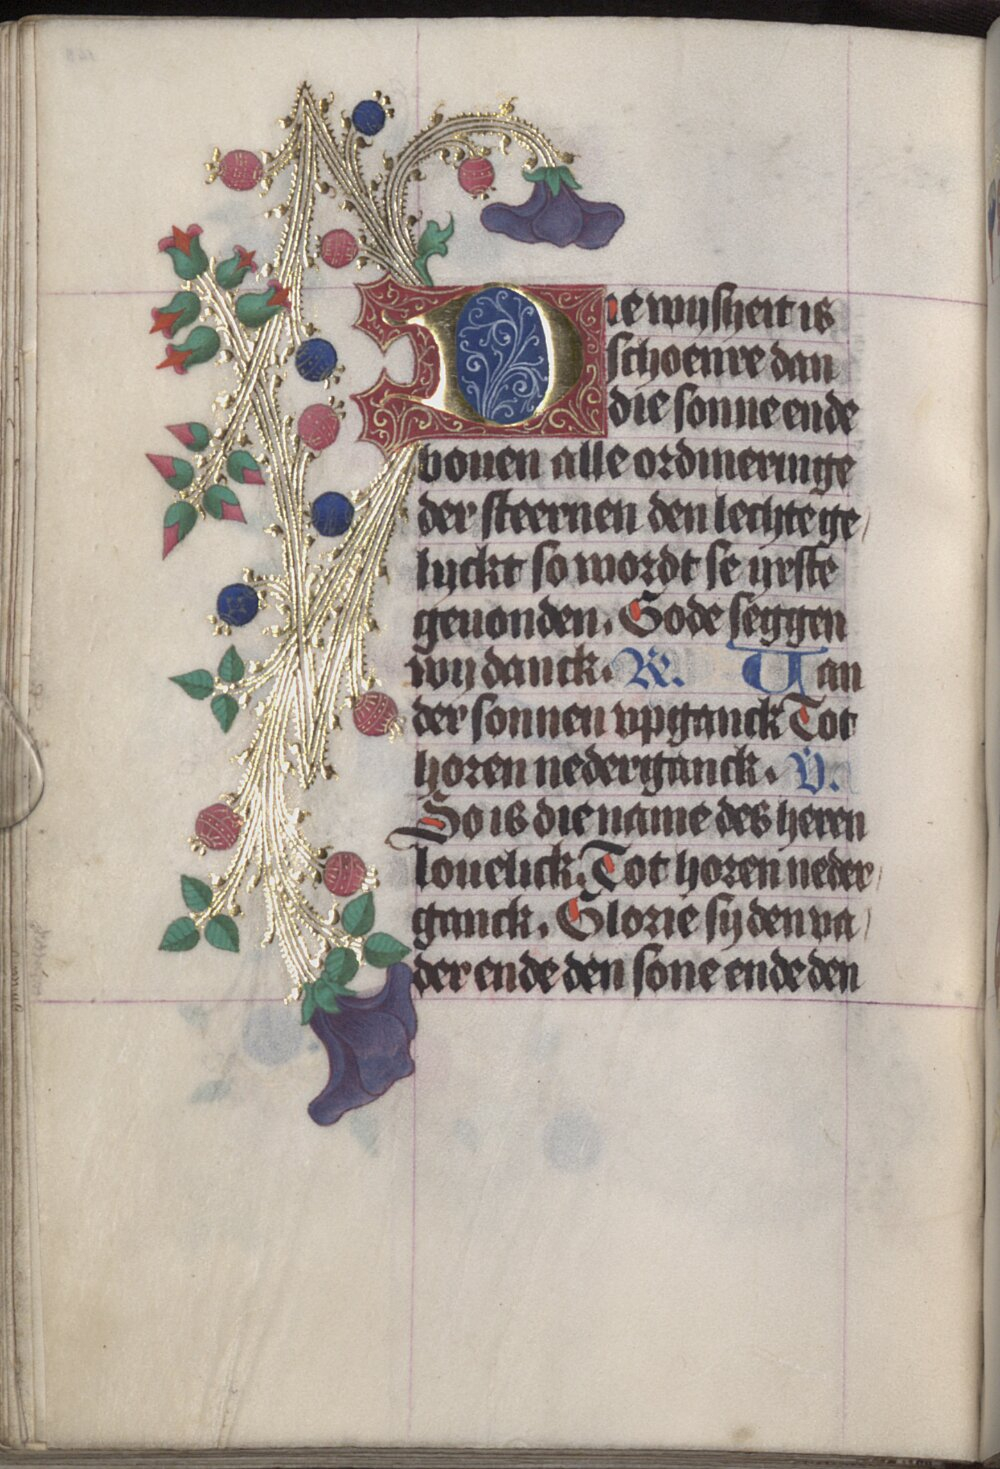 Die wijsheit is
schoenre dan
die sonne ende
bouen alle ordineringe
der steernen den lechte ge/
lijckt so wordt se yrste
geuonden. Gode seggen
wij danck. R. Uan
der sonnen vpganck Tot
horen nederganck. V.
So is die name des heren
louelick. Tot horen neder/
ganck. Glorie sij den va/
der ende den sone ende den